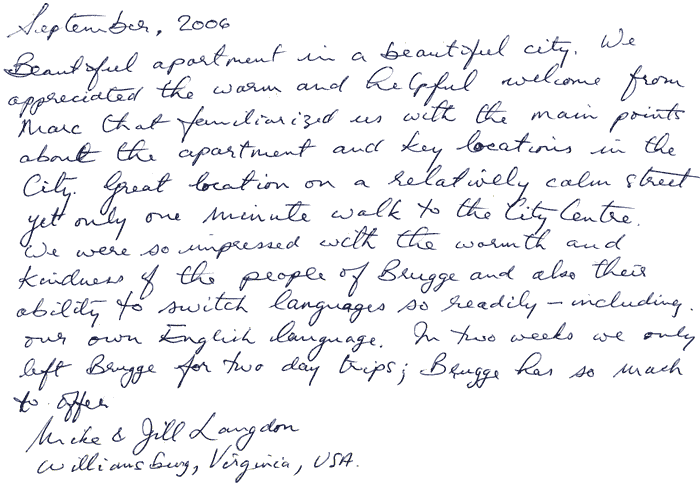 September, 2006
Beautiful apartment in a beautiful city. We
appreciated the warm and helpful welcome from
Marc that familiarized us with the main points
about the apartment and key locations in the
City. Great location on a relatively calm street
yet only one minute walk to the City Centre.
We were so impressed with the warmth and
kindness of the people of Brugge and also their
ability to switch languages so readily – including
our own English language. In two weeks we only
left Brugge for two day trips; Brugge has so much
to offer
Mike & Jill Langdon
Williamsburg, Virginia, USA.